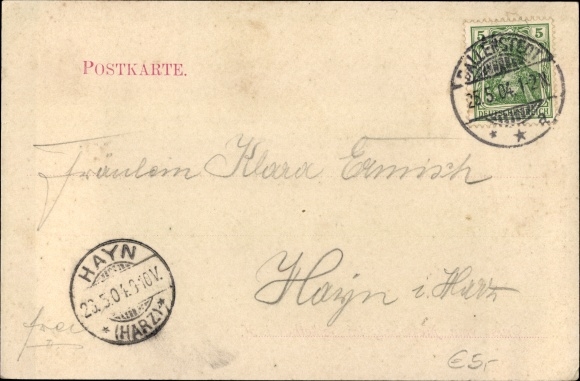 5 5
BALLENSTEDT
23.5.04. 1-2 N.
* * a
DEUTSCHES REICH
POSTKARTE.
Fräulein Klara Ermisch
HAYN
23.5.04. 9-10 V.
* (HARZ) *
Hayn i. Harz
frei
€5,-